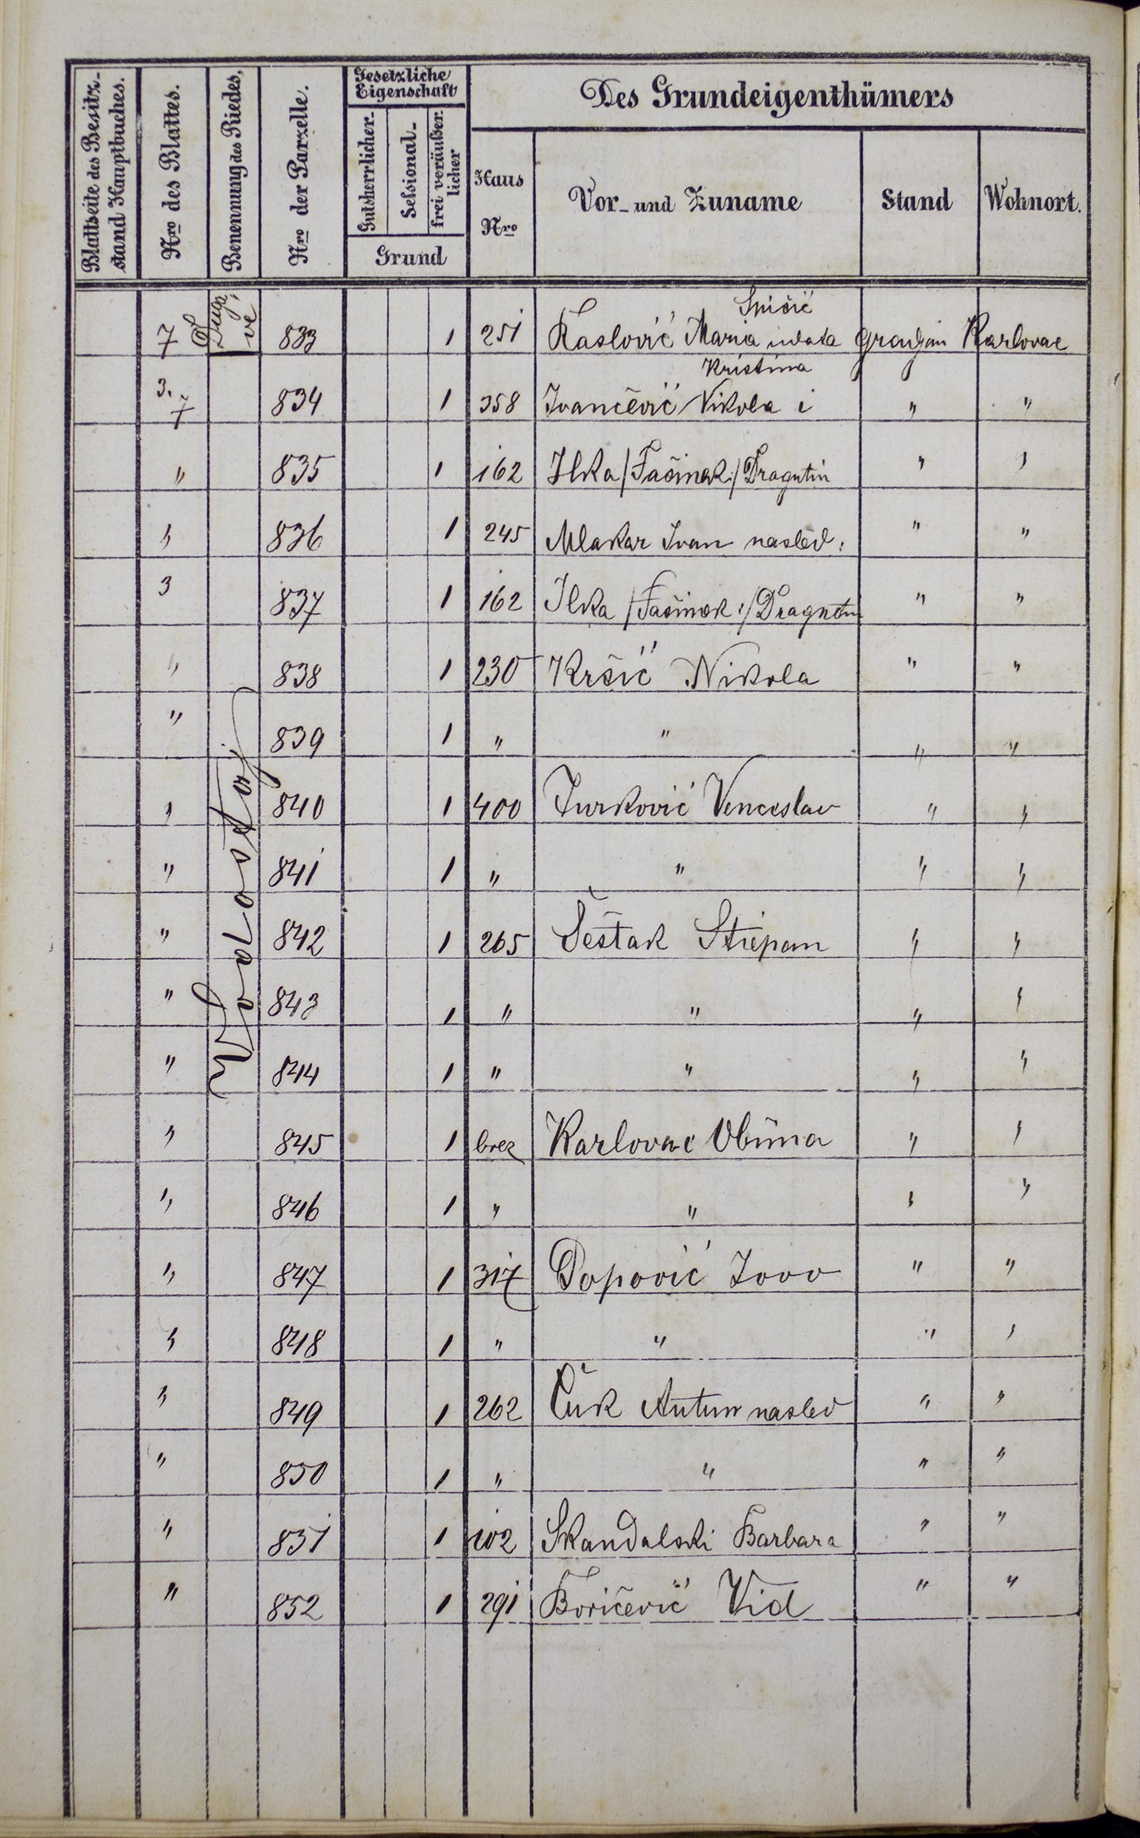 Blattseite des Besitz-
stand Hauptbuches.
Nro des Blattes.
Benennung des Riedes.
Nro der Parzelle.
Gesetzliche
Eigenschaft
Gutsherrlicher-
Sessional-
frei veräußer-
licher
Grund
Des Grundeigenthümers
Haus
Nro
Vor- und Zuname
Stand
Wohnort.
7 833 1 251 Kaslović Maria udata Gradjan Karlovac
Kristina
3. 7 834 1 358 Ivančević Nikola i " "
" 835 1 162 Ilka /Fašinek:/ Dragutin " "
" 836 1 245 Mlakar Ivan nasled: " "
3 837 1 162 Ilka /Fašinek:/ Dragutin " "
" 838 1 230 Kršić Nikola " "
" 839 1 " " " "
Vodostoj
" 840 1 400 Jurković Venceslav " "
" 841 1 " " " "
" 842 1 265 Šeštak Stiepan " "
" 843 1 " " " "
" 844 1 " " " "
" 845 1 brez Karlovac Obćina " "
" 846 1 " " " "
" 847 1 317 Popović Jovo " "
" 848 1 " " " "
" 849 1 262 Čuk Antun nasled " "
" 850 1 " " " "
" 851 1 102 Skandalski Barbara " "
" 852 1 291 Boričević Vid " "